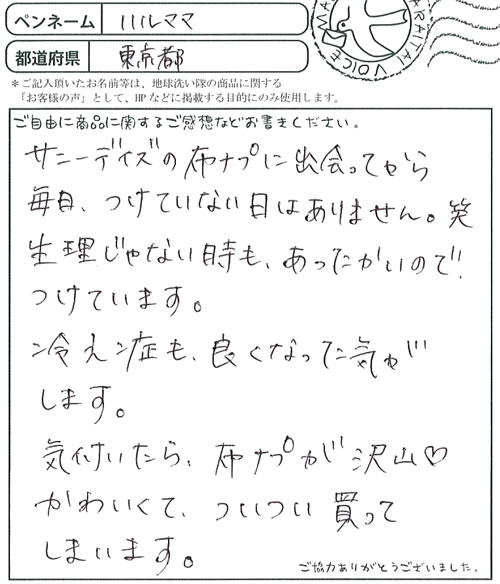 ペンネーム ハルママ
都道府県 東京都
＊ご記入頂いたお名前等は、地球洗い隊の商品に関する
「お客様の声」として、HPなどに掲載する目的にのみ使用します。
ご自由に商品に関するご感想などお書きください。
サニーデイズの布ナプに出会ってから
毎日、つけていない日はありません。笑
生理じゃない時も、あったかいので
つけています。
冷え症も、良くなった気が
します。
気付いたら、布ナプが沢山♡
かわいくて、ついつい買って
しまいます。
ご協力ありがとうございました。
VOICE